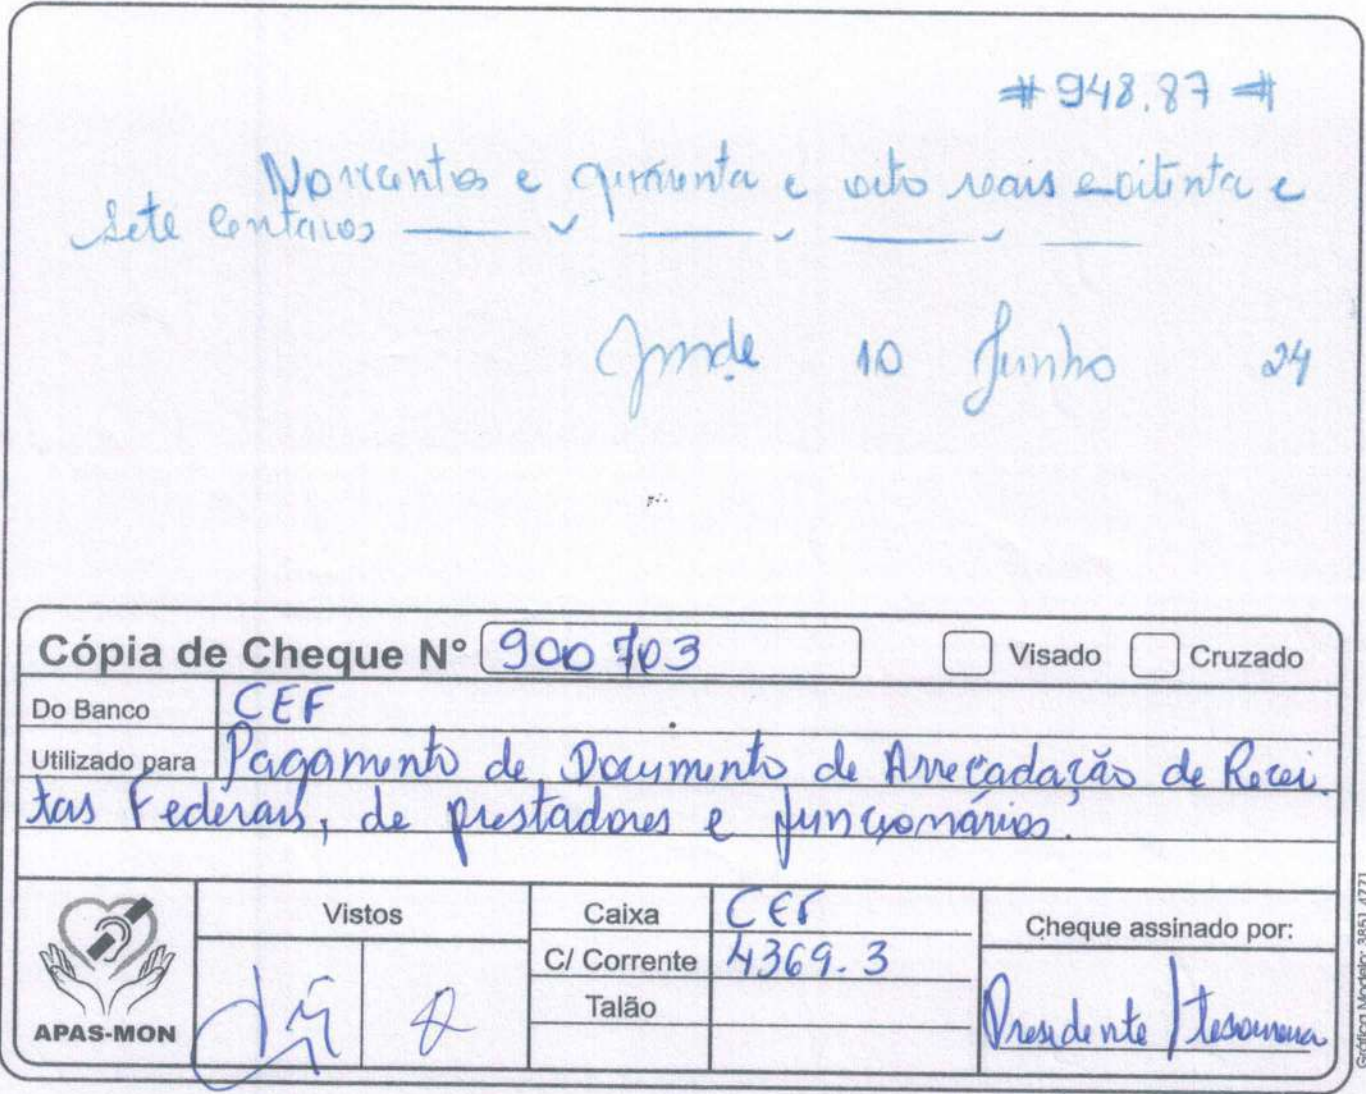 # 948.87 #
Novecentos e quarenta e oito reais e oitenta e
sete centavos
10 Junho 24
Cópia de Cheque N° 900703
Visado Cruzado
Do Banco CEF
Utilizado para Pagamento de Documento de Arrecadação de Recei-
tas Federais, de prestadores e funcionários.
Vistos
Caixa CEF
C/ Corrente 4369.3
Talão
Cheque assinado por:
Presidente / tesoureira
APAS-MON
Gráfica Modelo: 3851.4771